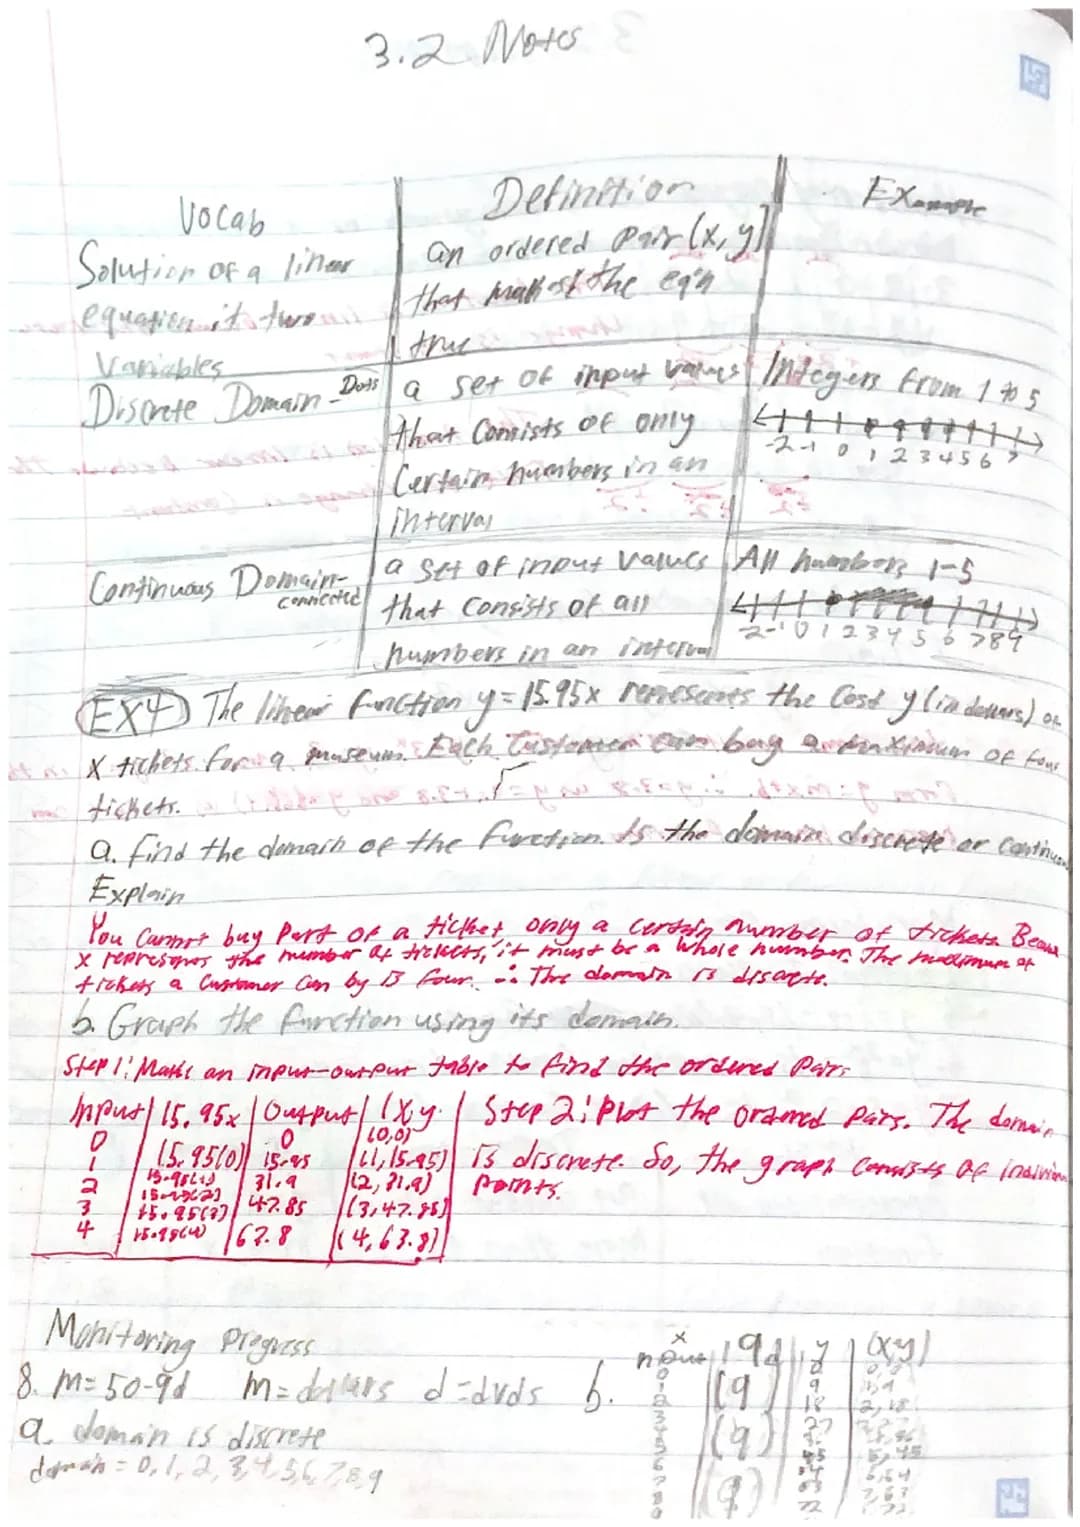 3.2 Notes
Vocab
Definition
Example
Solution of a linear
equation it two
Variables
an ordered pair (x, y)
that makes the eq'n
true
Discrete Domain - Dots
a set of input values
that consists of only
Certain numbers in an
interval
Integers from 1 to 5
-2 -1 0 1 2 3 4 5 6 7
Continuous Domain-
connected
a set of input values
that consists of all
numbers in an interval
All numbers 1-5
-2 -1 0 1 2 3 4 5 6 7 8 9
EX4 The linear function y = 15.95x represents the cost y (in dollars) of
x tickets for a museum. Each customer can buy a maximum of four
tickets.
a. find the domain of the function. Is the domain discrete or continuous
Explain
You cannot buy part of a ticket, only a certain number of tickets. Because
x represents the number of tickets, it must be a whole number. The maximum of
tickets a customer can by is four. ∴ The domain is discrete.
b. Graph the function using its domain.
Step 1: Make an input-output table to find the ordered pairs
Input | 15.95x | Output | (x,y)
0 15.95(0) 0 (0,0)
1 15.95(1) 15.95 (1,15.95)
2 15.95(2) 31.9 (2,31.9)
3 15.95(3) 47.85 (3,47.85)
4 15.95(4) 63.8 (4,63.8)
Step 2: Plot the ordered pairs. The domain
is discrete. So, the graph consists of
points.
Monitoring Progress
8. m = 50-9d m = dollars d = dvds
a. domain is discrete
domain = 0,1,2,3,4,5,6,7,8,9
b.
x
9d y (x,y)